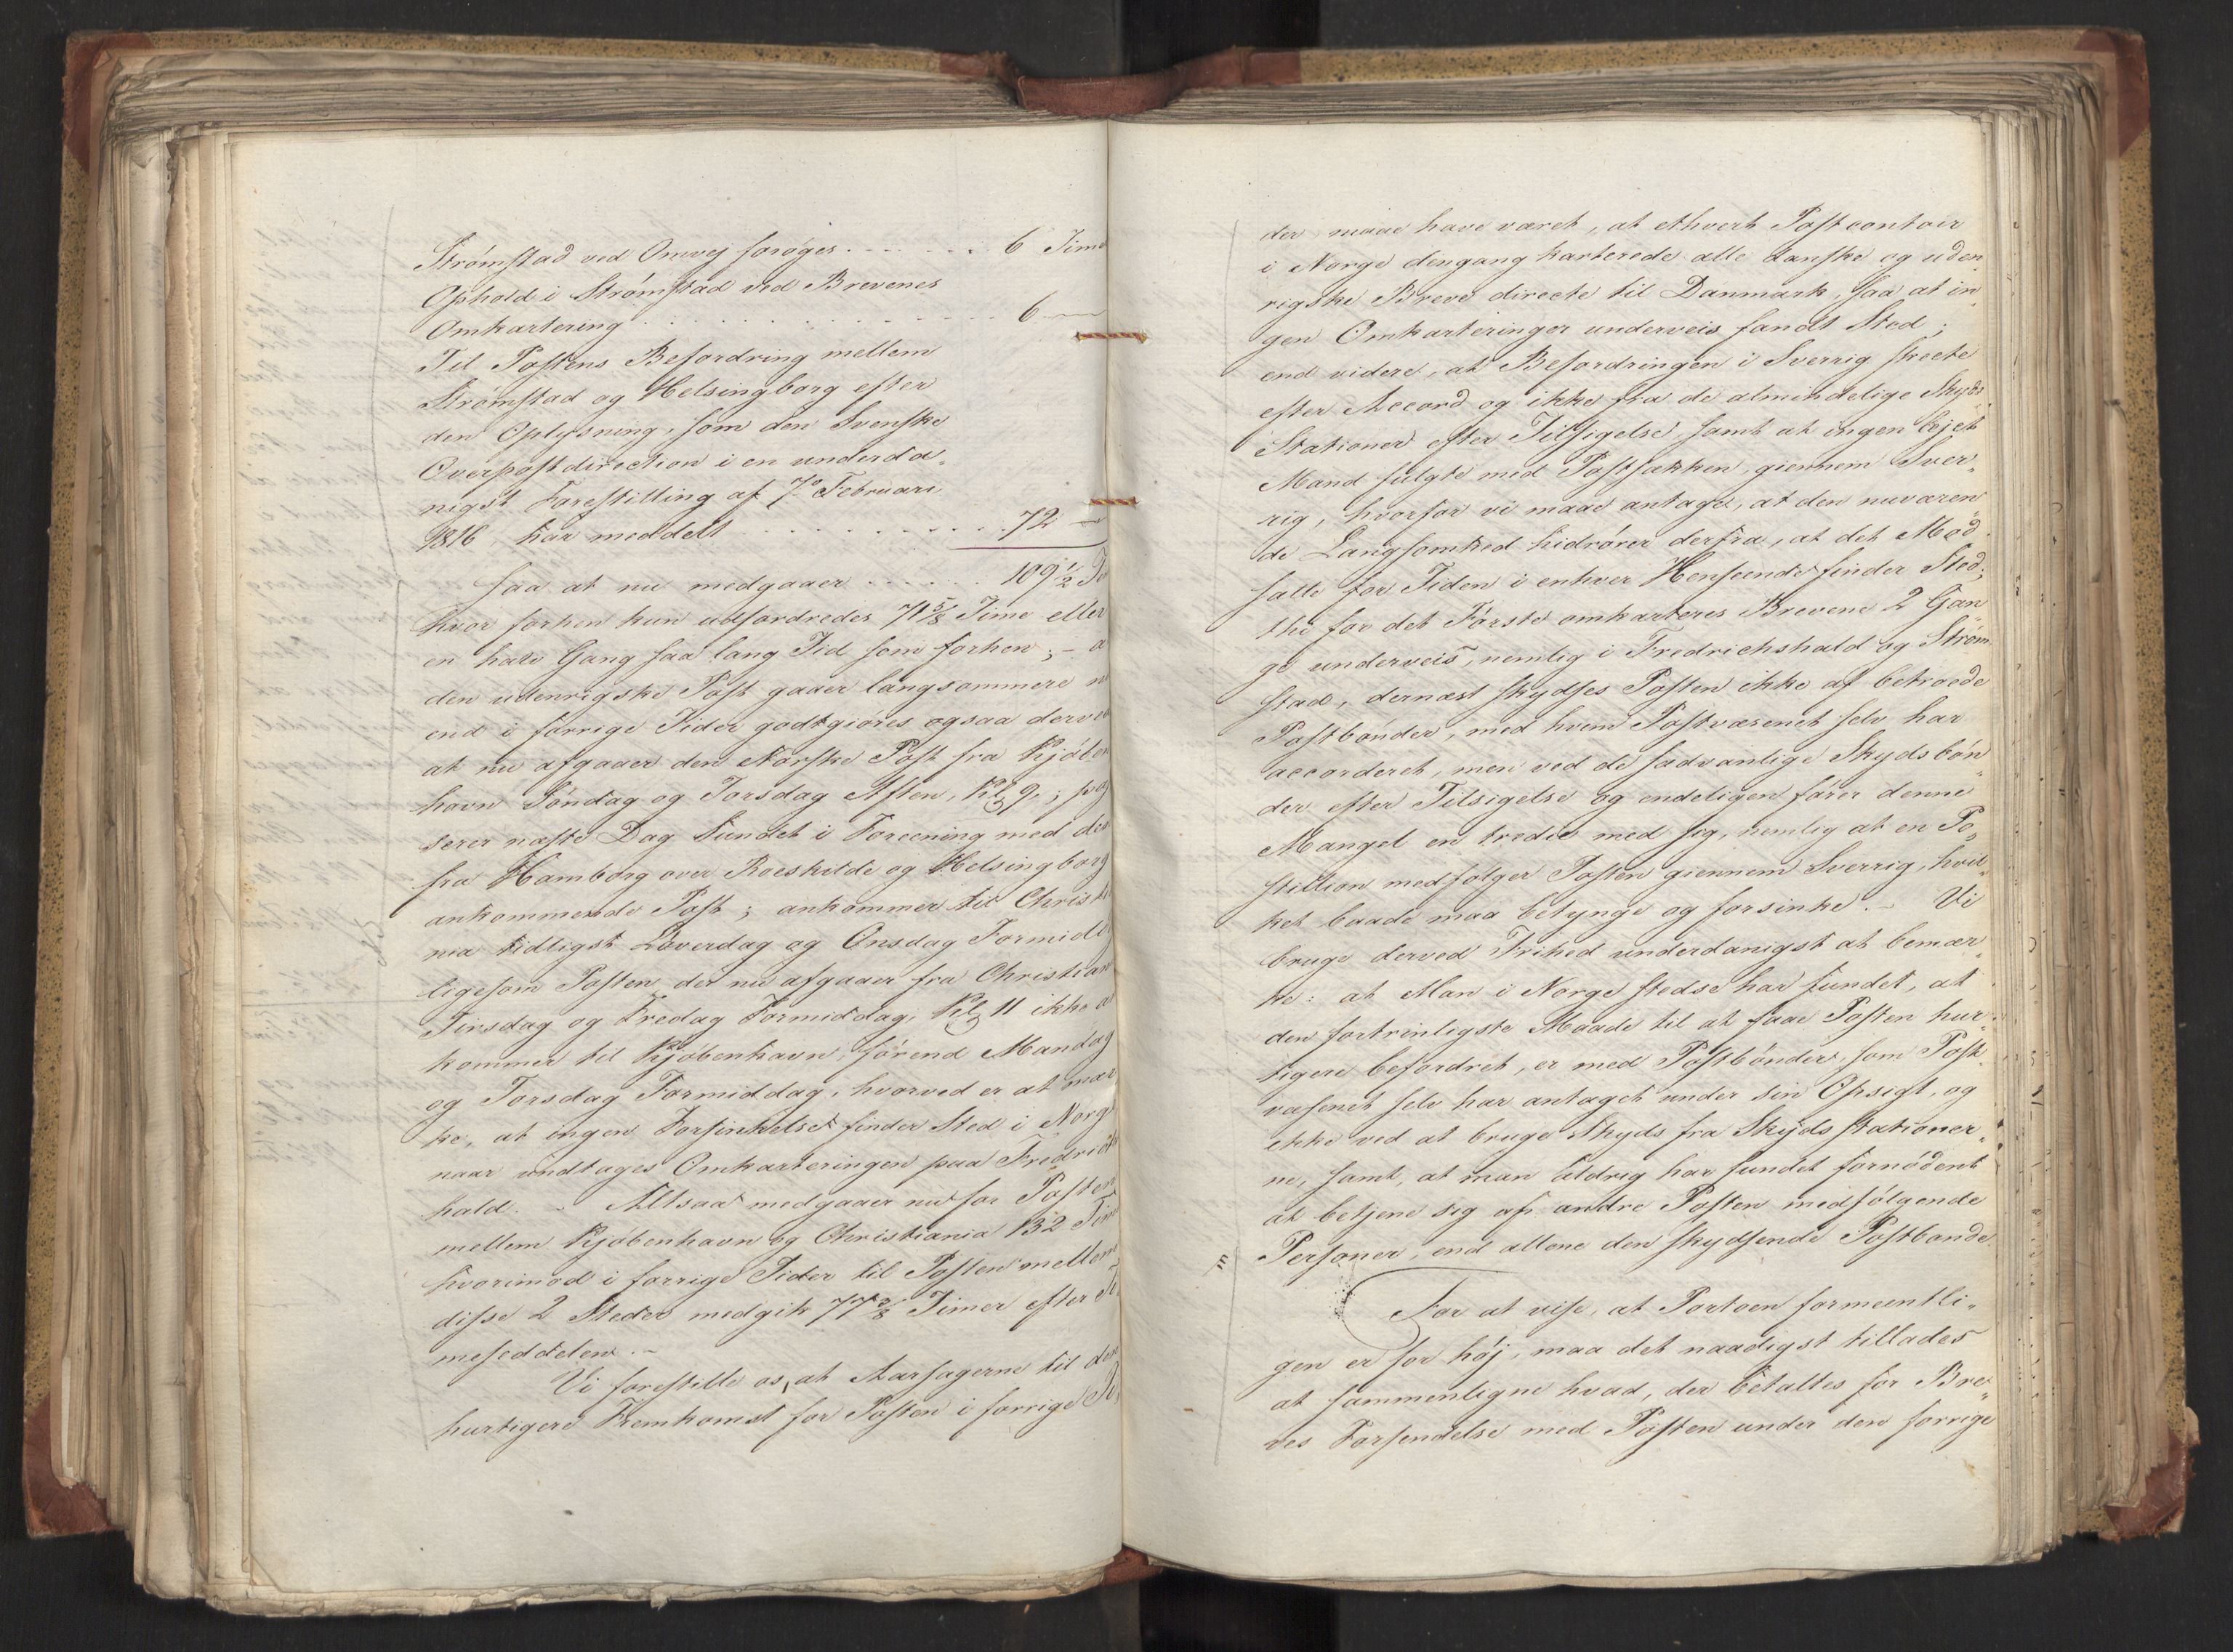 Strømstad ved Omvej forøges . . . . . . . 6 Time
Ophold i Strømstad ved Brevenes
Omkartering . . . . . . . . . . . . . . . 6 —
Til Postens Befordring mellem
Strømstad og Helsingborg efter
den Oplysning, som den Svenske
Overpostdirection i en underda„
nigst Forestilling af 7de Februari
1816, har meddelt . . . . . . . . . . . 72 —
saa at nu medgaaer . . . . . . 109 1/2 Ti
hvor forhen kun udfordredes 71 5/8 Time eller
en halv Gang saa lang Tid som forhen; - a
den udenrigske Post gaaer langsommere n
end i forrige Tider godtgiøres ogsaa derve
at nu afgaaer den Norske Post fra Kjøben
havn Søndag og Torsdag Aften, Kl 9, ; pas
serer næste Dag Sundet i Foreening med de
fra Hamborg over Roeskilde og Helsingborg
ankommende Post; ankommer til Christi
nia tidligst Løverdag og Onsdag Formidd
ligesom Posten, der nu afgaaer fra Christian
Tirsdag og Fredag Formiddag, Kl 11 ikke a
kommer til Kjøbenhavn, førend Mandag
og Torsdag Formiddag, hvorved er at mær
ke, at ingen Forsinkelse finder Sted i Norg
naar undtages Omkarteringen paa Fredrich
hald. - Altsaa medgaaer nu for Posten
mellem Kjøbenhavn og Christiania 132 Tim
hvorimod i forrige Tider til Posten mellem
disse 2 Steder medgik 77 3/8 Timer efter Ti
meseddelen. -
Vi forestille os, at Aarsagerne til den
hurtigere Fremkomst for Posten i forrige Ti
der maae have været, at ethvert Postcontoir
i Norge dengang karterede alle danske og uden„
rigske Breve directe til Danmark, saa at in„
gen Omkarteringer underveis fandt Sted;
end videre, at Befordringen i Sverrig skeete
efter Accord og ikke fra de almindelige Skyds
Stationer efter Tilsigelse, samt at ingen lejet
Mand fulgte med Postsækken, giennem Sver„
rig, hvorfor vi maae antage, at den nuværen„
de Langsomhed hidrører derfra, at det Mod„
satte for Tiden i enhver Henseende finder Sted;
thi for det Første omkarteres Brevene 2 Gan„
ge underveis, nemlig i Fredrichshald og Strøm
stad, dernæst skydses Posten ikke af betroede
Postbønder, med hvem Postvæsenet selv har
accorderet, men ved de sædvanlige Skydsbøn„
der efter Tilsigelse og endeligen fører denne
Mangel en tredie med sig, nemlig at en Po„
stillion medfølger Posten giennem Sverrig, hvil„
ket baade maa betynge og forsinke. - Vi
bruge derved Frihed underdanigst at bemær„
ke: at Man i Norge stedse har fundet, at
den fortrinligste Maade til at faae Posten hur„
tigere befordret, er med Postbønder, som Post„
væsenet selv har antaget under sin Opsigt, og
ikke ved at bruge Skyds fra Skydsstationer„
ne, samt, at man aldrig har fundet fornødent
at betjene sig af andre Posten medfølgende
Personer, end allene den skydsende Postbonde
For at vise, at Portoen formeentli„
gen er for høj, maa det naadigst tillades
at sammenligne hvad, der betaltes for Bre„
ves Forsendelse med Posten under den forrige